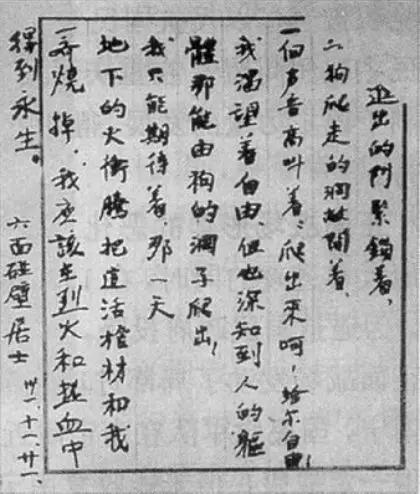 进出的门紧鎖着、
狗爬走的洞敞開着、
一個声音高叫着：爬出来呵！給尔自由！
我渴望着自由，但也深知到人的軀
體那能由狗的洞子爬出！
我只能期待着，那一天
地下的火衝騰，把這活棺材和我
一齊燒掉，我应該在烈火和熱血中
得到永生。
六面碰壁居士
卅一、十一、廿一、